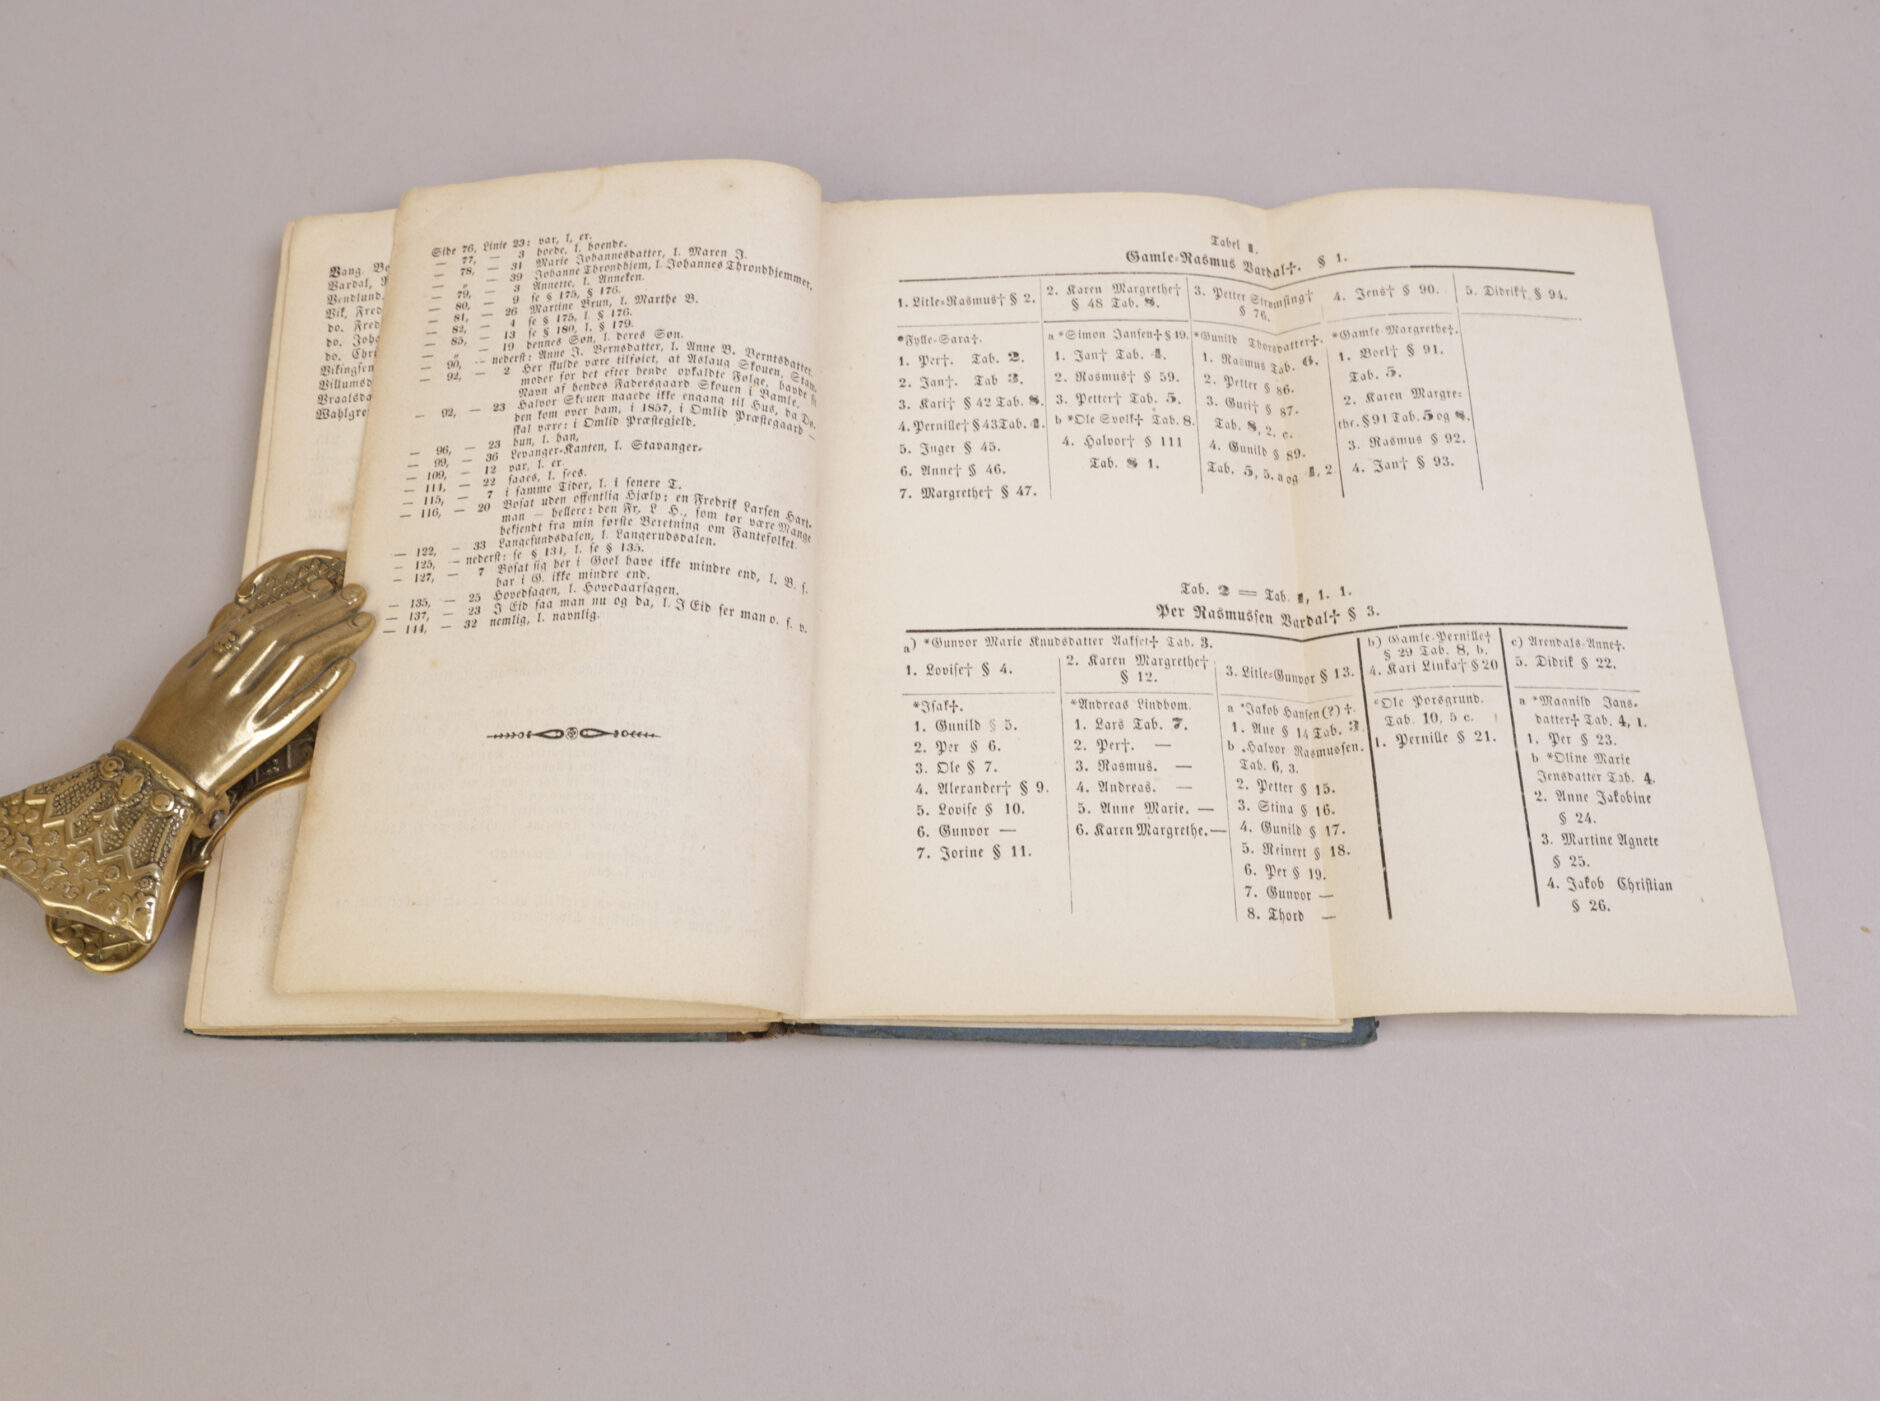 Vang, Bo
Vardal, R
Vendlund,
Vik, Fred
do. Fred
do. Joha
do. Chri
Vikingsen
Villumsd
Vraalsda
Wahlgre
Side 76, Linie 23: var, l. er.
— 77, — 3 boede, l. boende.
— 78, — 31 Marie Johannesdatter, l. Maren J.
— „ — 39 Johanne Throndhjem, l. Johannes Throndhjemmer.
— 79, — 3 Annette, l. Anneken.
— 80, — 9 se § 175, § 176.
— 81, — 26 Martine Brun, l. Marthe B.
— 82, — 4 se § 175, l. § 176.
— 85, — 13 se § 180, l. § 179.
— „ — 19 dennes Søn, l. deres Søn.
— 90, — nederst: Anne J. Bernsdatter, l. Anne B. Berntsdatter.
— 92, — 2 Her skulde være tilføiet, at Aslaug Skouen, Stam-
moder for det efter hende opkaldte Følge, havde sit
Navn af hendes Fadersgaard Skouen i Bamle.
— 92, — 23 Halvor Skouen naaede ikke engang til Hus, da Dø-
den kom over ham, i 1857, i Omlid Præstegaard —
skal være: i Omlid Præstegjeld.
— 96, — 23 hun, l. han,
— 99, — 36 Levanger-Kanten, l. Stavanger-
— 109, — 12 var, l. er.
— 114, — 22 saaes, l. sees.
— 115, — 7 i samme Tider, l. i senere T.
— 116, — 20 Bosat uden offentlig Hjælp: en Fredrik Larsen Hart-
man — hellere: den Fr. L H., som tør være Mange
bekjendt fra min første Beretning om Fantefolket.
— 122, — 33 Langesundsdalen, l. Langerudsdalen.
— 125, — nederst: se § 134, l. se § 135.
— 127, — 7 Bosat sig her i Goel have ikke mindre end, l. B. s.
har i G. ikke mindre end.
— 135, — 25 Hovedsagen, l. Hovedaarsagen.
— 137, — 23 I Eid saa man nu og da, l. I Eid ser man o. s. v.
— 144, — 32 nemlig, l. navnlig.
Tabel 1.
Gamle-Rasmus Vardal†. § 1.
1. Litle-Rasmus† § 2.
*Fylle-Sara†.
1. Per†. Tab. 2.
2. Jan†. Tab 3.
3. Kari† § 42 Tab. 8.
4. Pernille† § 43 Tab. 4.
5. Inger § 45.
6. Anne† § 46.
7. Margrethe† § 47.
2. Karen Margrethe†
§ 48 Tab. 8.
a *Simon Jansen† § 49.
1. Jan† Tab. 4.
2. Rasmus† § 59.
3. Petter† Tab. 5.
b *Ole Svolk† Tab. 8.
4. Halvor† § 111
Tab. 8 1.
3. Petter Strømsing†
§ 76.
*Gunild Thorsdatter†.
1. Rasmus Tab. 6.
2. Petter § 86.
3. Guri† § 87.
Tab. 8, 2. c.
4. Gunild § 89.
Tab. 5, 5. a og 4, 2
4. Jens† § 90.
*Gamle-Margrethe†.
1. Boel† § 91.
Tab. 5.
2. Karen Margre-
the. § 91 Tab. 5 og 8.
3. Rasmus § 92.
4. Jan† § 93.
5. Didrik† § 94.
Tab. 2 = Tab. 1, 1. 1.
Per Rasmussen Vardal† § 3.
a) *Gunvor Marie Knudsdatter Aakset† Tab. 3.
1. Lovise† § 4.
*Isak†.
1. Gunild § 5.
2. Per § 6.
3. Ole § 7.
4. Alexander† § 9.
5. Lovise § 10.
6. Gunvor —
7. Jorine § 11.
2. Karen Margrethe†
§ 12.
*Andreas Lindbom.
1. Lars Tab. 7.
2. Per†. —
3. Rasmus. —
4. Andreas. —
5. Anne Marie. —
6. Karen Margrethe. —
3. Litle-Gunvor § 13.
a *Jakob Hansen (?) †.
1. Ane § 14 Tab. 3.
b *Halvor Rasmussen.
Tab. 6, 3.
2. Petter § 15.
3. Stina § 16.
4. Gunild § 17.
5. Reinert § 18.
6. Per § 19.
7. Gunvor —
8. Thord —
b) Gamle-Pernille†
§ 29 Tab. 8, b.
4. Kari Linka† § 20
*Ole Porsgrund.
Tab. 10, 5 c.
1. Pernille § 21.
c) Arendals-Anne†.
5. Didrik § 22.
a *Magnild Jans-
datter† Tab. 4, 1.
1. Per § 23.
b *Oline Marie
Jensdatter Tab. 4.
2. Anne Jakobine
§ 24.
3. Martine Agnete
§ 25.
4. Jakob Christian
§ 26.